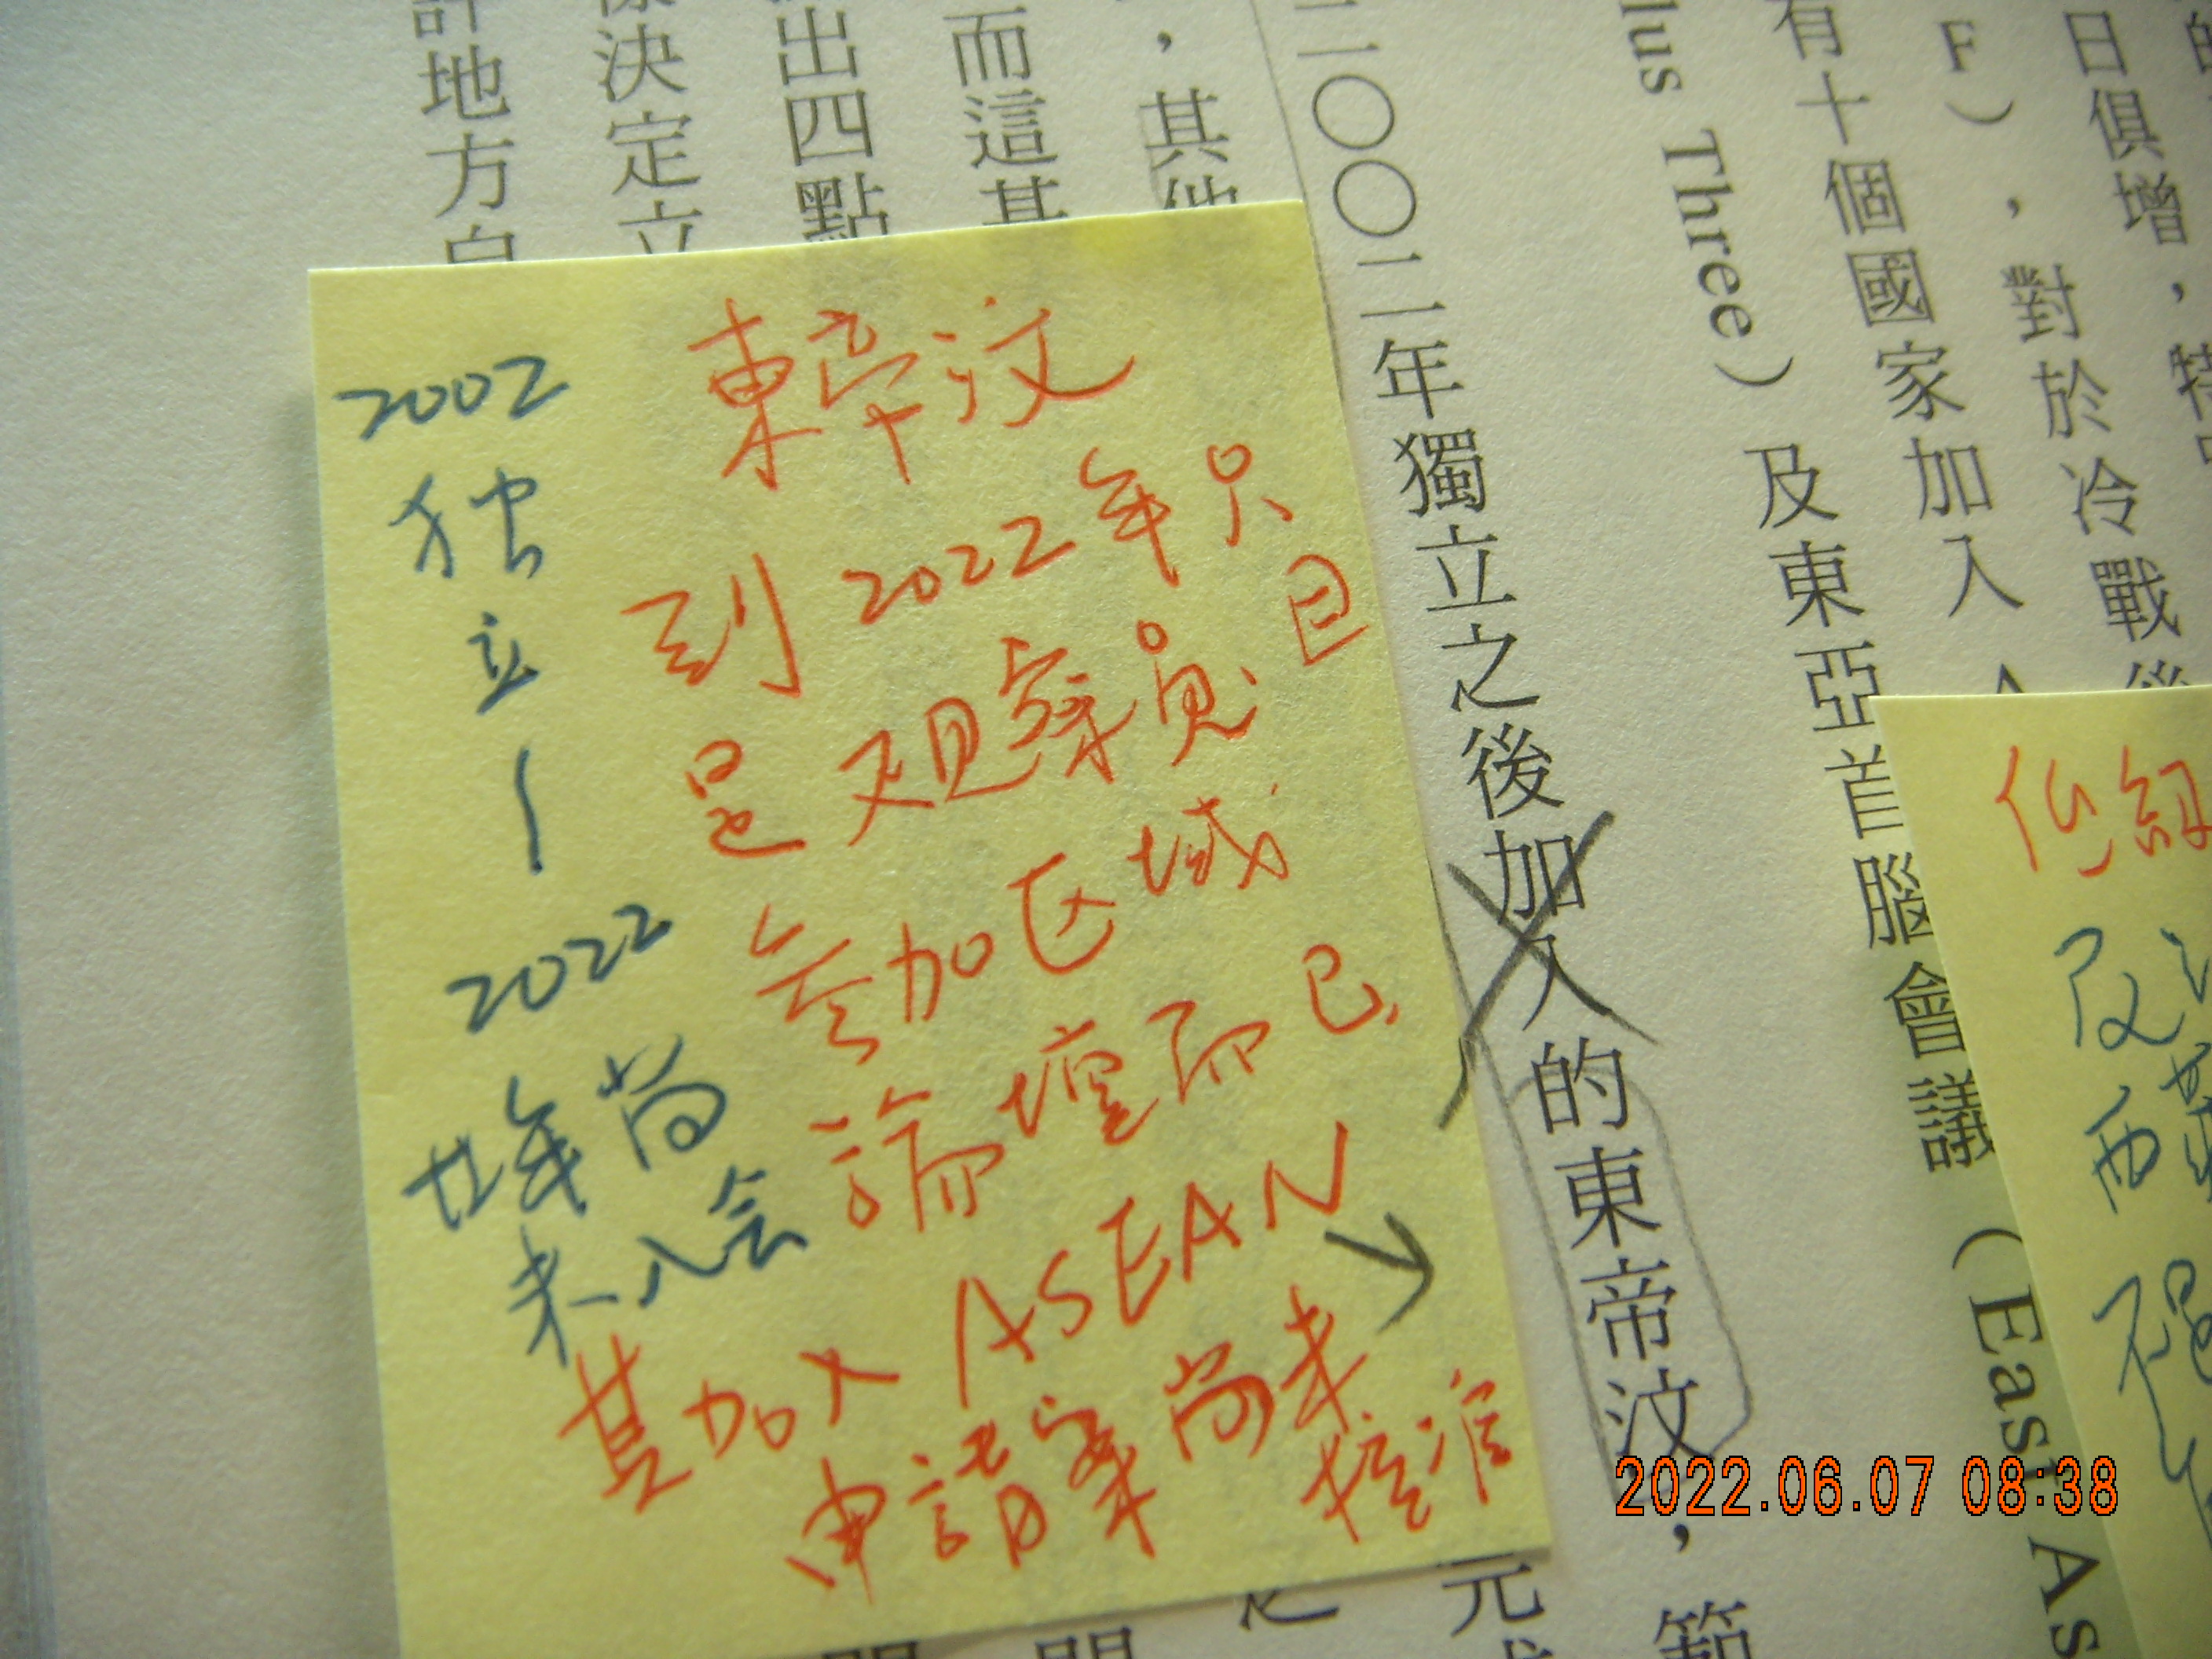 的
日俱增，特
F），對於冷戰後
有十個國家加入
lus Three）及東亞首腦會議（East As
二〇〇二年獨立之後加入的東帝汶，範
，其他
而這基
出四點
決定立
計地方自
元
東帝汶
到2022年只
是观察員国
参加区域
論壇而已
其加入ASEAN
申請案尚未
核准
2002
独
立
～
2022
廿年尚
未入会
低
反
西
2022.06.07 08:38